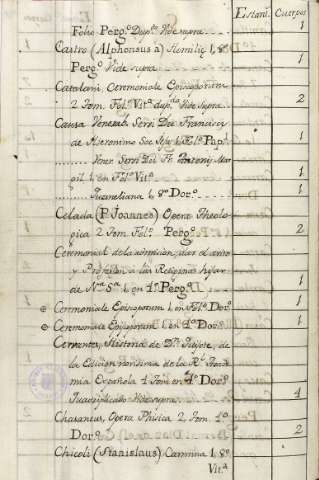 Estant. Cuerpos
Folio Perg.º Dup.do Vide supra 1
Castro (Alphonsus à) Homilię 1. 8º
Perg.º Vide supra 1
Catalani Ceremoniale Episcoporum
2 Tom. Fol.º Vit.ª dup.da Vide Supra 2
Causa Venerab. Servi Dei Francisci
de Hieronimo Soc. Jesu 1. Fol.º Pap.l 1
Vener. Servi Dei Fr. Antonij Mar
gil 1. en Fol.º Vit.ª 1
Aureliana 1. 8º Dor.º 1
Celada (P. Joannes) Opera Theolo
gica 2 Tom. Fol.º Perg.º 2
Ceremonial de la admision, dar el avito
y Profesion a las Religiosas
de Ntra. S.ª 1. en 4º Perg.º 1
Ceremoniale Episcoporum 1. en Fol.º Dor.º 1
Ceremoniale Episcoporum 1. en 4º Dor.º 1
Cervantes, Historia de Dn. Quijote, de
la Edicion de la Rl. Acade
mia Española 4 Tom. en 4º Dor.º
Vide supra 4
Chasanius, Opera Phisica 2 Tom. 4º
Dor.º 2
Chicoli (Stanislaus) Carmina 1. 8º
Vit.ª